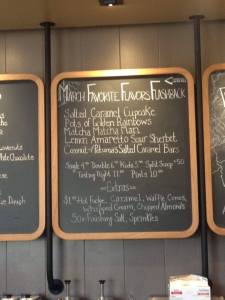 March Favorite Flavors Flashback
Salted Caramel Cupcake
Pots of Golden Rainbows
Matcha Matcha Man
Lemon Amaretto Sour Sherbet
Coconut Salted Caramel Bars
Single 4 Double 6 Kids 3 Split Scoop 50
Tasting Flight 11 Pints 10
Extras
Hot Fudge, Caramel, Waffle Cones,
Whipped Cream, Chopped Almonds
50¢ Finishing Salt, Sprinkles
Chocolate
Dough